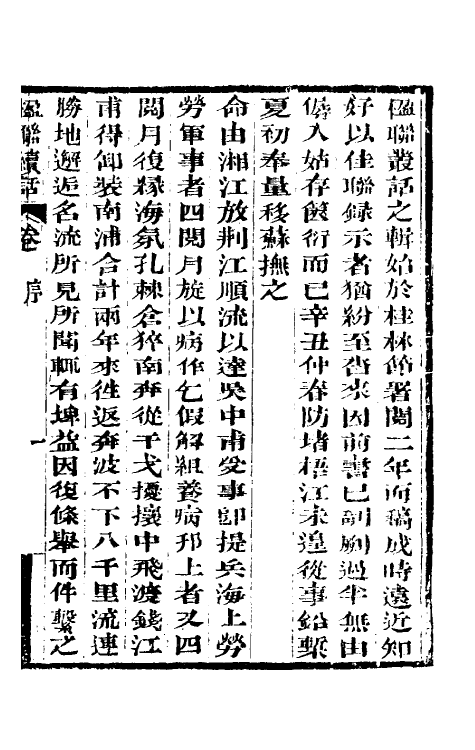 楹聯叢話之輯始於桂林節署閱二年而稿成時遠近知
好以佳聯録示者猶紛至沓來因前書已剞劂過半無由
儕入姑存篋衍而已辛丑仲春防堵梧江未遑從事鉛槧
夏初奉量移蘇撫之
命由湘江放荆江順流以達吳中甫受事卽提兵海上勞
勞軍事者四閱月旋以病作乞假解組養病邗上者又四
閱月復緣海氛孔棘倉猝南奔從干戈擾攘中飛渡錢江
甫得卸裝南浦合計兩年來徃返奔波不下八千里流連
勝地邂逅名流所見所聞輒有埤益因復條舉而件繫之
楹聯續話
卷
序
一